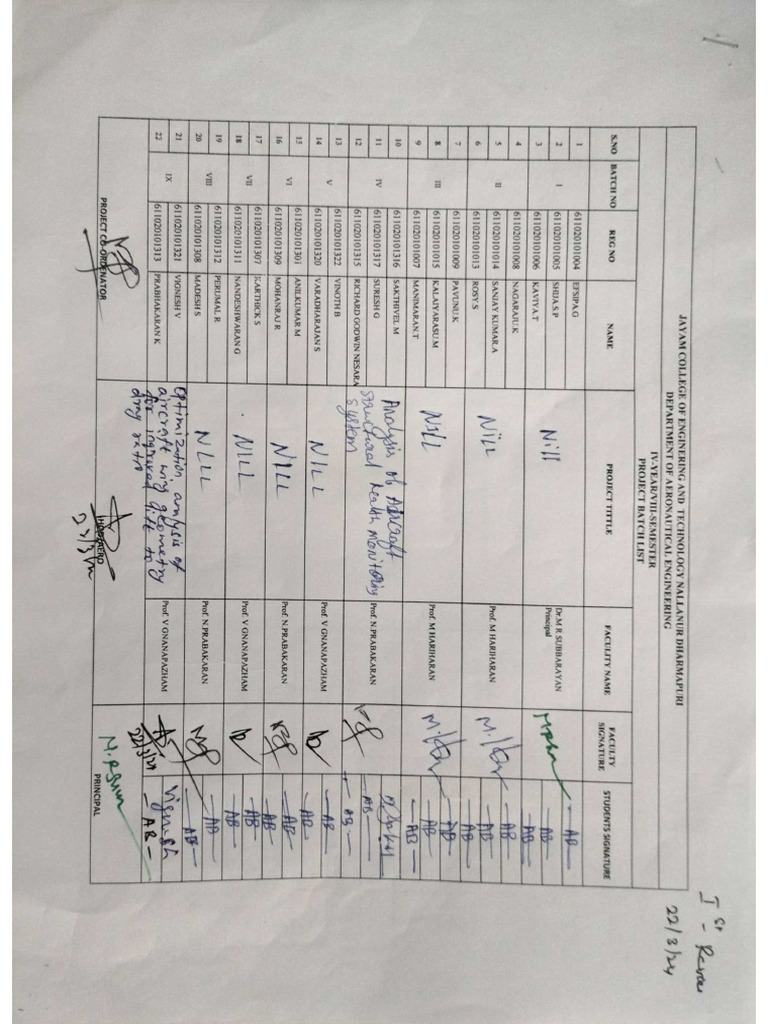 Ist - Review
22/3/24
JAYAM COLLEGE OF ENGINERING AND TECHNOLOGY NALLANUR DHARMAPURI
DEPARTMENT OF AERONAUTICAL ENGINEERING
IV-YEAR/VIII-SEMESTER
PROJECT BATCH LIST
S.NO BATCH NO REG NO NAME PROJECT TITTLE FACULITY NAME FACULTY SIGNATURE STUDENTS SIGNATURE
1 611020101004 EFSIPA.G AB
2 I 611020101005 SHIJA.S.P Nill Dr.M R SUBBARAYAN Principal AB
3 611020101006 KAVIYA.T AB
4 611020101008 NAGARAJU.K AB
5 II 611020101014 SANJAY KUMAR.A Nill Prof. M HARIHARAN AB
6 611020101013 ROSY.S AB
7 611020101009 PAVUNU.K AB
8 III 611020101015 KALAIYARASU.M Nill Prof. M HARIHARAN AB
9 611020101007 MANIMARAN.T AB
10 611020101316 SAKTHIVEL M
11 IV 611020101317 SURESH G Analysis of Aircraft Structural Health Monitoring System Prof. N.PRABAKARAN AB
12 611020101315 RICHARD GODWIN NESARA AB
13 V 611020101322 VINOTH B AB
14 611020101320 VARADHARAJAN S NILL Prof. V GNANAPAZHAM AB
15 VI 611020101301 ANILKUMAR M AB
16 611020101309 MOHANRAJ R NILL Prof. N.PRABAKARAN AB
17 VII 611020101307 KARTHICK S AB
18 611020101311 NANDESHWARAN G NILL Prof. V GNANAPAZHAM AB
19 VIII 611020101312 PERUMAL R AB
20 611020101308 MADESH S NILL Prof. N.PRABAKARAN AB
21 IX 611020101321 VIGNESH V Optimization analysis of aircraft wing geometry for improved lift to drag ratio Prof. V GNANAPAZHAM 22/3/24 Vignesh
22 611020101313 PRABHAKARAN K AB
PROJECT CO-ORDENATOR HOD/AERO PRINCIPAL